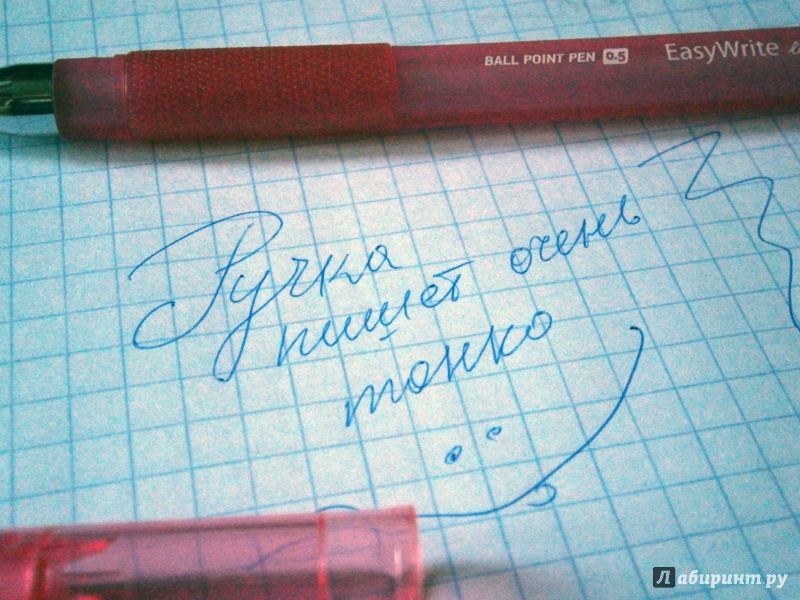 BALL POINT PEN 0.5 EasyWrite
Ручка
пишет очень
тонко
Лабиринт.ру